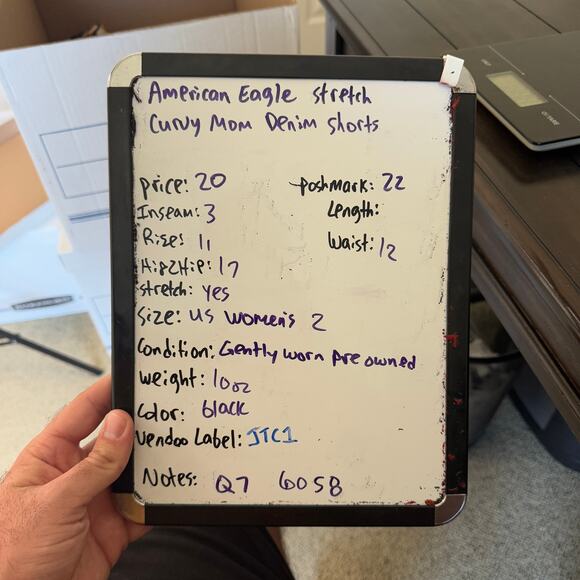 American Eagle stretch
Curvy Mom Denim shorts
price: 20
poshmark: 22
Inseam: 3
Length:
Rise: 11
Waist: 12
Hip2Hip: 17
stretch: yes
Size: US Women's 2
Condition: Gently worn pre owned
weight: 10oz
Color: black
Vendoo Label: JTC1
Notes: Q7 6058